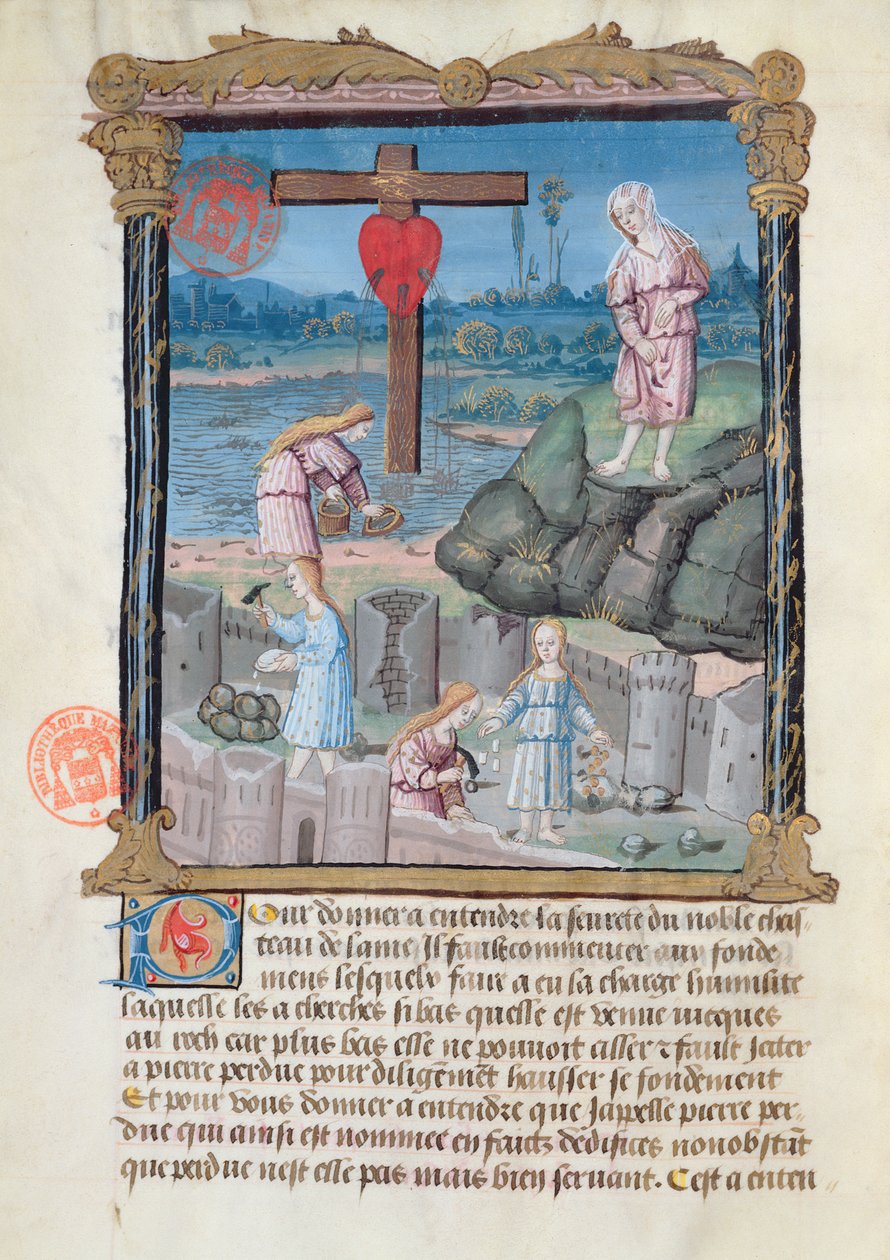 BIBLIOTHÈQUE MAZ
Pour donner a entendre la seurete du noble chas-
teau de lame Il fault commencer aux fonde
mens lesquelx faire a eu la charge humilite
laquelle les a cherches si bas quelle est venue iucques
au roch car plus bas elle ne pouoit aller ⁊ fault Jcter
a pierre perdue pour diligēmēt haulser se fondement
Et pour vous donner a entendre que Jappelle pierre per-
due qui ainsi est nommee en faictz dedifices nonobstāt
que perdue nest elle pas mais bien seruant. Cest a enten